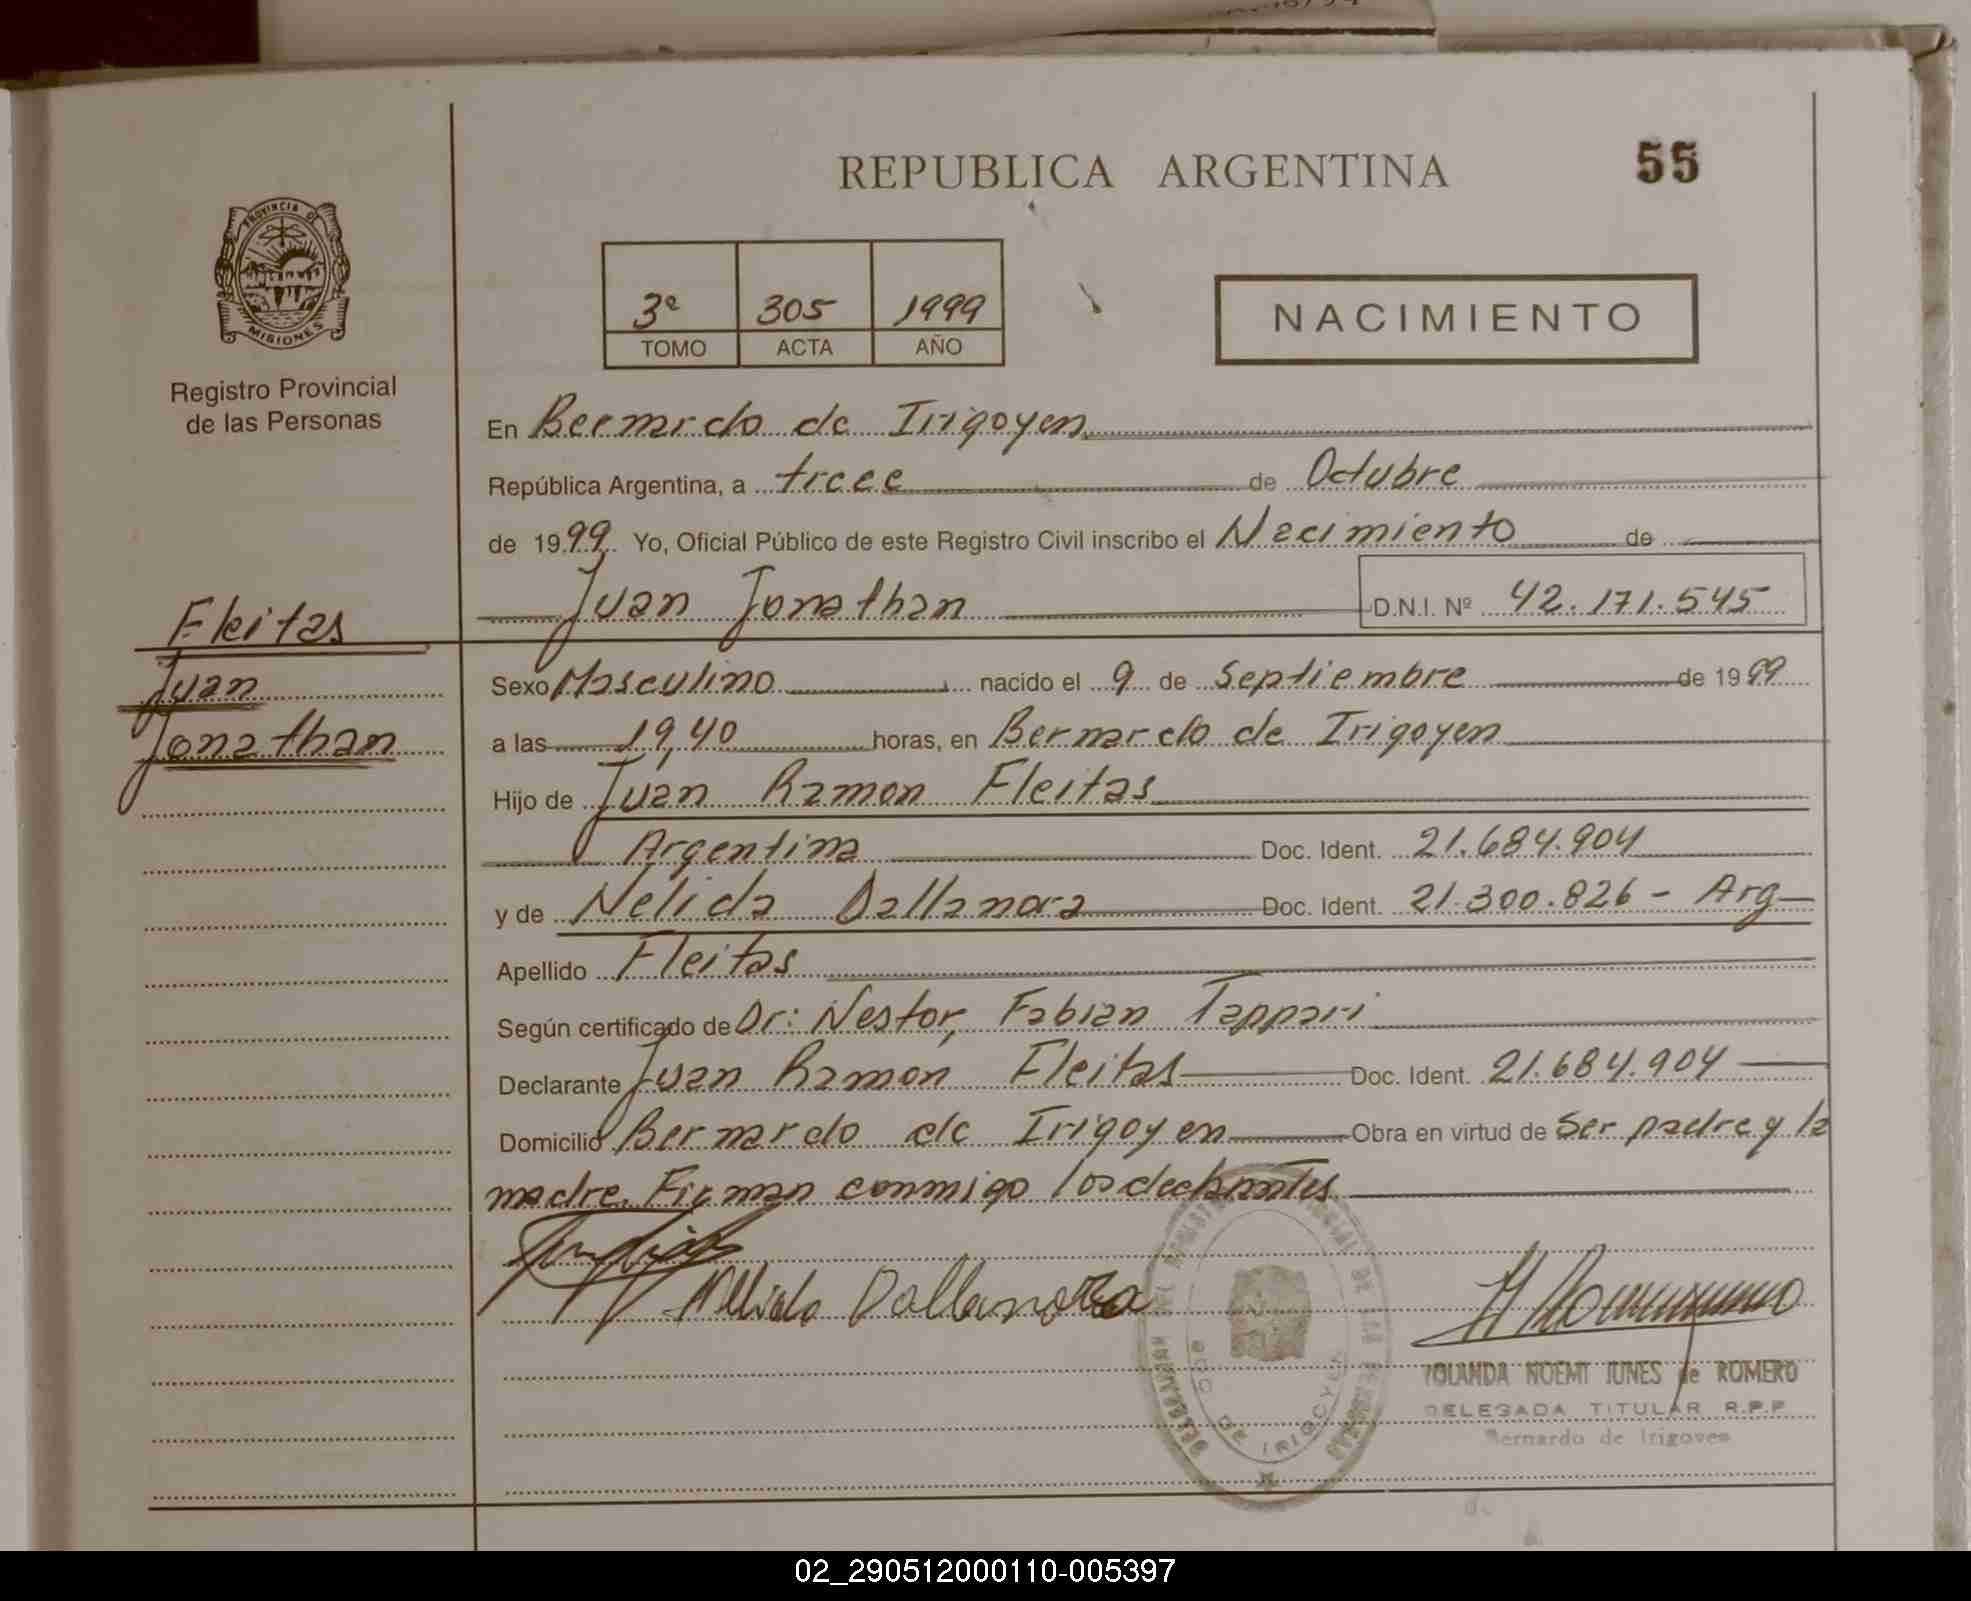 REPUBLICA ARGENTINA
55
PROVINCIA DE
MISIONES
Registro Provincial
de las Personas
3º 305 1999
TOMO ACTA AÑO
NACIMIENTO
En Bernardo de Irigoyen
República Argentina, a trece de Octubre
de 1999 Yo, Oficial Público de este Registro Civil inscribo el Nacimiento de
Juan Jonathan D.N.I. Nº 42.171.545
Fleitas
Juan
Jonathan
Sexo Masculino nacido el 9 de Septiembre de 1999
a las 19,40 horas, en Bernardo de Irigoyen
Hijo de Juan Ramon Fleitas
Argentina Doc. Ident. 21.684.904
y de Nélida Dallanora Doc. Ident. 21.300.826 - Arg
Apellido Fleitas
Según certificado de Dr: Nestor, Fabian Tappari
Declarante Juan Ramón Fleitas Doc. Ident. 21.684.904
Domicilio Bernardo de Irigoyen Obra en virtud de Ser padre y la
madre. Firman conmigo los declarantes
Nelida Dallanora
DE IRIGOYEN
YOLANDA NOEMI JUNES de ROMERO
DELEGADA TITULAR R.P.P.
Bernardo de Irigoyen
02_290512000110-005397